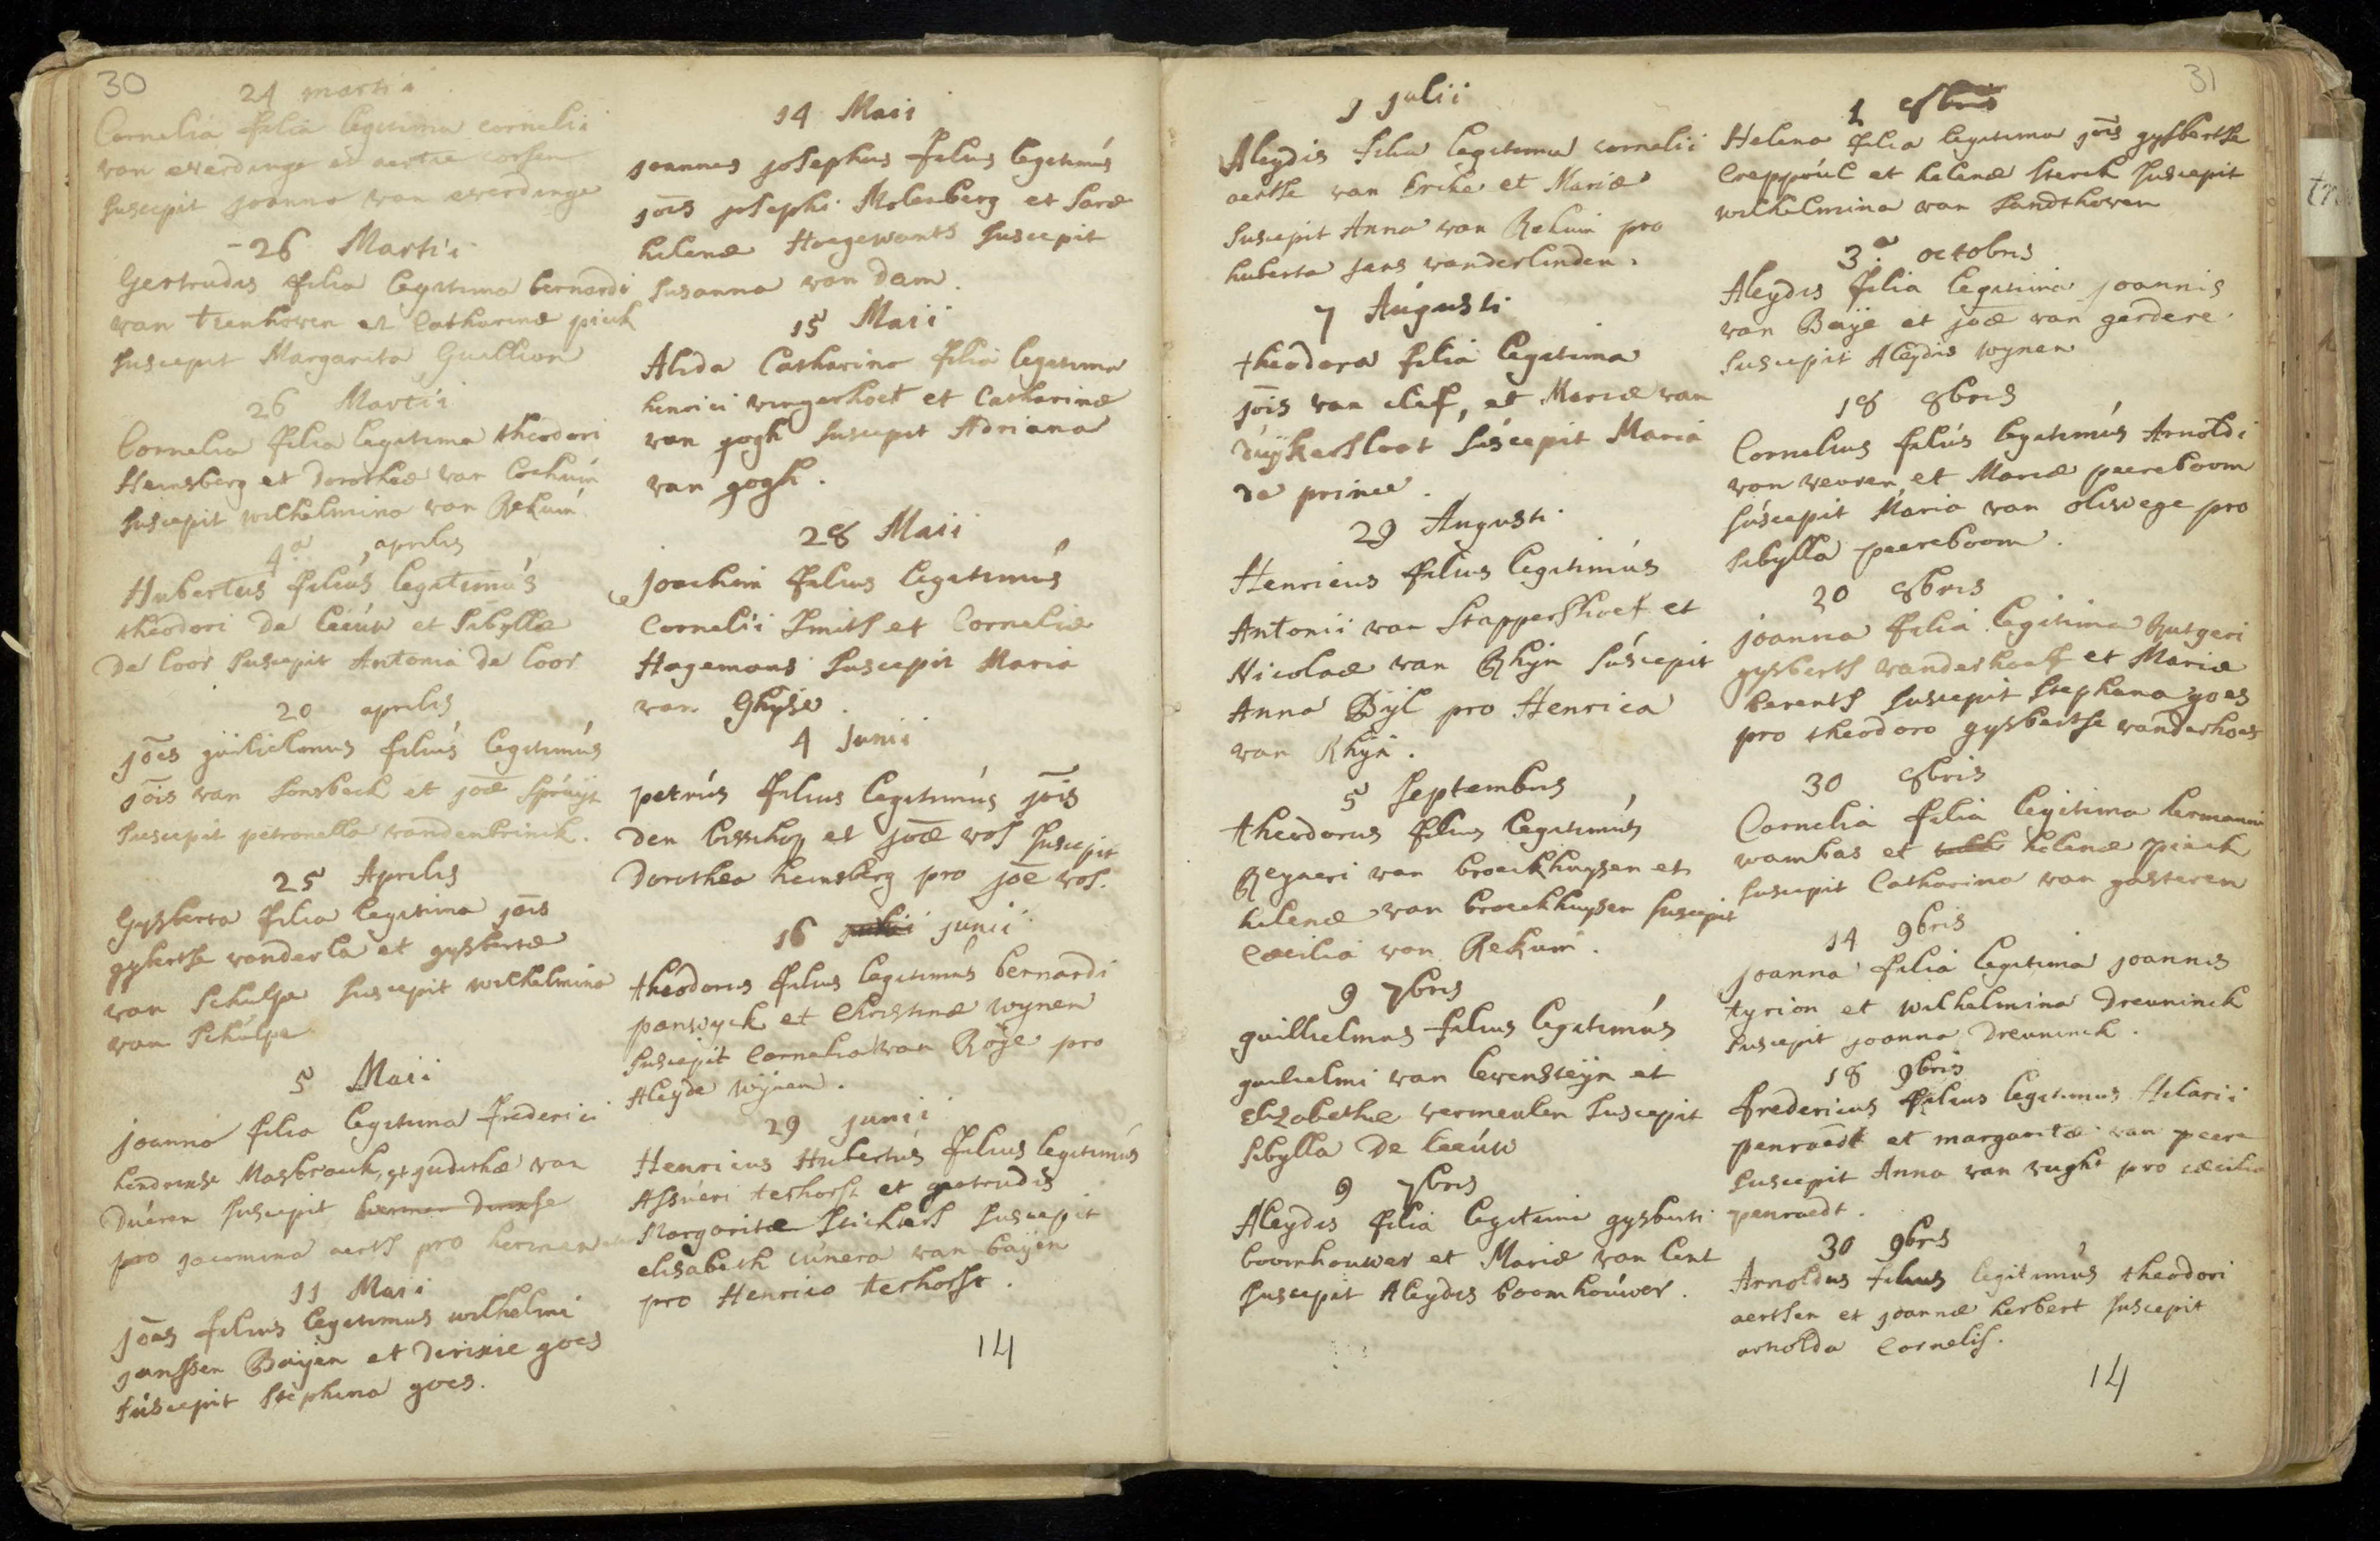 30
24 martii
Cornelia filia legitima cornelii
van everdinge et aertie corsen
suscepit joanna van everdinge
- 26 Martii
Gertrudis filia legitima bernardi
van trenhoven et Catharinæ pieck
suscepit Margarita Guillion
26 Martii
Cornelia filia legitima theodori
Heinsberg et Dorotheæ van Lochuin
suscepit wilhelmina van Rekum
4.a aprilis
Hubertus filius legitimus
theodori De leeuw et Sibyllæ
De loor suscepit Antonia de loor
20 aprilis
jões guilielmus filius legitimus
jõis van Sonsbeek et joæ Spruyt
suscepit petronella vandenbrinck.
25 Aprilis
Gysberta filia legitima jõis
gybertse vanderla et gysbertæ
van Schulpe suscepit wilhelmina
van Schulpe
5 Maii
joanna filia legitima frederici
hendrickse Masbrouck, et judithæ van
Dueren suscepit
pro jacomina aerts pro hermen
11 Maii
jões filius legitimus wilhelmi
janssen Baijen et Diricxie goes
suscepit Stephana goes.
14 Maii
joannes josephus filius legitimus
jõis josephi Molenberg et Saræ
helenæ Hoegewants suscepit
susanna van Dam.
15 Maii
Alida Catharina filia legitima
henrici wingerhoet et Catharinæ
van gogh suscepit Adriana
van gogh.
28 Maii
joachim filius legitimus
Cornelii Smits et Corneliæ
Hagemans suscepit Maria
van Ghyse.
4 Junii
petrus filius legitimus jõis
Den bisschop et joæ vos suscepit
Dorothea heinsberg pro joe vos.
16 julii junii
theodorus filius legitimus bernardi
panwyck et Christinæ wynen
suscepit Cornelia van Roije pro
Aleyde wijnen.
29 junii
Henricus Hubertus filius legitimus
Assueri terhorst et gertrudis
Margaritæ Sticharl suscepit
elisabeth cunera van baijen
pro Henrico terhorst.
14
31
9 julii
Aleydis filia legitima cornelii
aertse van Ercke et Mariæ
suscepit Anna van Rekum pro
huberta jans vanderlinden.
7 Augusti
theodora filia legitima
jõis van clef, et Mariæ van
Duijkersloot suscepit Maria
de prince.
29 Augusti
Henricus filius legitimus
Antonii van Stappershoef et
Nicolaæ van Rhijn suscepit
Anna Dijl pro Henrica
van Rhijn.
5 septembris
theodorus filius legitimus
Reyneri van broeckhuysen et
helenæ van broeckhuysen suscepit
Cæcilia van Rekum.
9 7bris
guillielmus filius legitimus
guilielmi van levensteijn et
elizabethæ vermeulen suscepit
Sibylla De leeuw
9 7bris
Aleydis filia legitima gysberti
boomhouwer et Mariæ van lent
suscepit Aleydis boomhouwer.
1 8bris
Helena filia legitima jõis gysbertse
Creppoul et helenæ sterck suscepit
wilhelmina van Sandthoven
3.a octobris
Aleydis filia legitima joannis
van Baije et joæ van gerdere.
suscepit Aleydis wynen
18 8bris
Cornelius filius legitimus Arnoldi
van reuven et Mariæ peereboom
suscepit Maria van oliwege pro
Sibylla peereboom.
20 8bris
joanna filia legitima Rutgeri
gysberts vanderhoef et Mariæ
berents suscepit Stephana goes
pro theodoro gysbertse vanderhoef
30 8bris
Cornelia filia legitima hermanni
wambas et helenæ pieck
suscepit Catharina van gasteren
14 9bris
joanna filia legitima joannis
tyrion et wilhelmina Dreuninck
suscepit joanna Dreuninck.
18 9bris
fredericus filius legitimus Hilarii
penraedt et margaritæ van peere
suscepit Anna van vught pro cæcilia
penraedt.
30 9bris
Arnoldus filius legitimus theodori
aertsen et joannæ herbert suscepit
arnolda Cornelis.
14